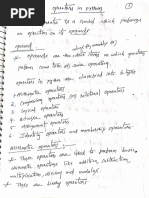 operators in python
①
operator is a symbol which performs
an operation on its operands
operand:
* operands are one more items on which operators
perform some task or some operation.
operators in python are classified into 6 types
1. Arithmetic operators
2. Comparison operators
3. Logical operators
4. Bitwise operators
5. Assignment operators
6. Identity operators and membership operators
Arithmetic operators :-
* These operators are used to perform basic
Arithmetic operations like addition, subtraction,
multiplication, division and modulus
* These are binary operators